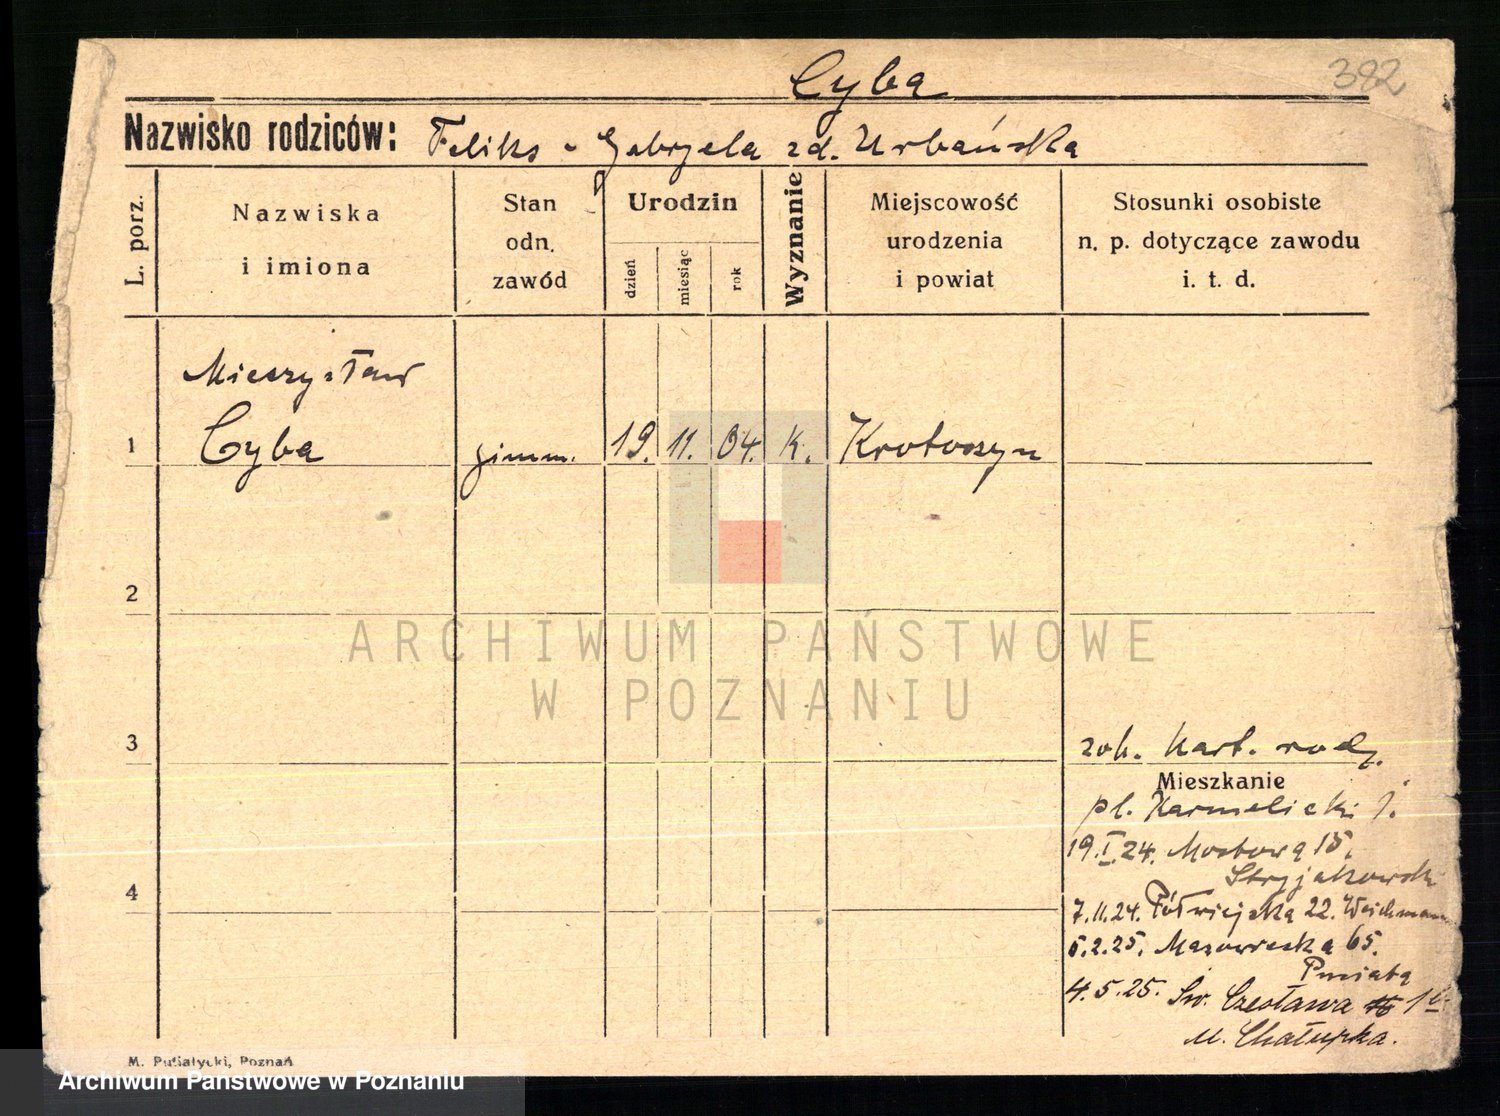 Cyba
392
Nazwisko rodziców: Feliks - Gabryela zd. Urbańska
L. porz.
Nazwiska
i imiona
Stan
odn.
zawód
Urodzin
dzień
miesiąc
rok
Wyznanie
Miejscowość
urodzenia
i powiat
Stosunki osobiste
n. p. dotyczące zawodu
i. t. d.
Mieczysław
1 Cyba gimn. 19. 11. 04. K. Krotoszyn
2
ARCHIWUM PAŃSTWOWE
W POZNANIU
3 zob. kart. rodz.
Mieszkanie
pl. Karmelicki 1.
19.I.24. Mostowa 15.
Stryjakowski
4
7.11.24. Półwiejska 22. Weichmann
5.2.25. Mazowiecka 65.
4.5.25. Św. Czesława
M. Chałupka.
M. Pusiatycki, Poznań
Archiwum Państwowe w Poznaniu